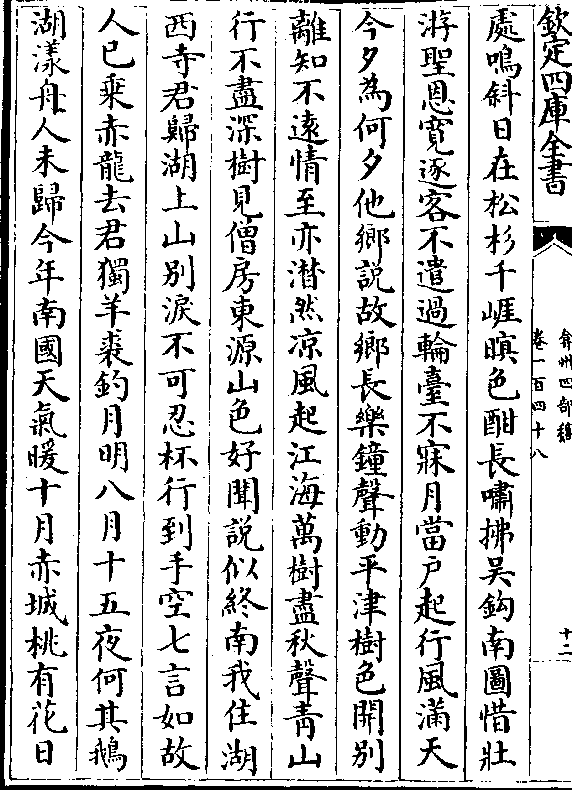 欽定四庫全書
弇州四部稿
卷一百四十八
十二
處鳴斜日在松杉千崕暝色酣長嘯拂吴鈎南圖惜壯
游聖恩寛逐客不遣過輪臺不寐月當户起行風滿天
今夕為何夕他鄉説故鄉長樂鐘聲動平津樹色開别
離知不逺情至亦潸然凉風起江海萬樹盡秋聲青山
行不盡深樹見僧房東源山色好聞説似終南我住湖
西寺君歸湖上山别淚不可忍杯行到手空七言如故
人已乘赤龍去君獨羊裘釣月明八月十五夜何其鵝
湖漾舟人未歸今年南國天氣暖十月赤城桃有花日